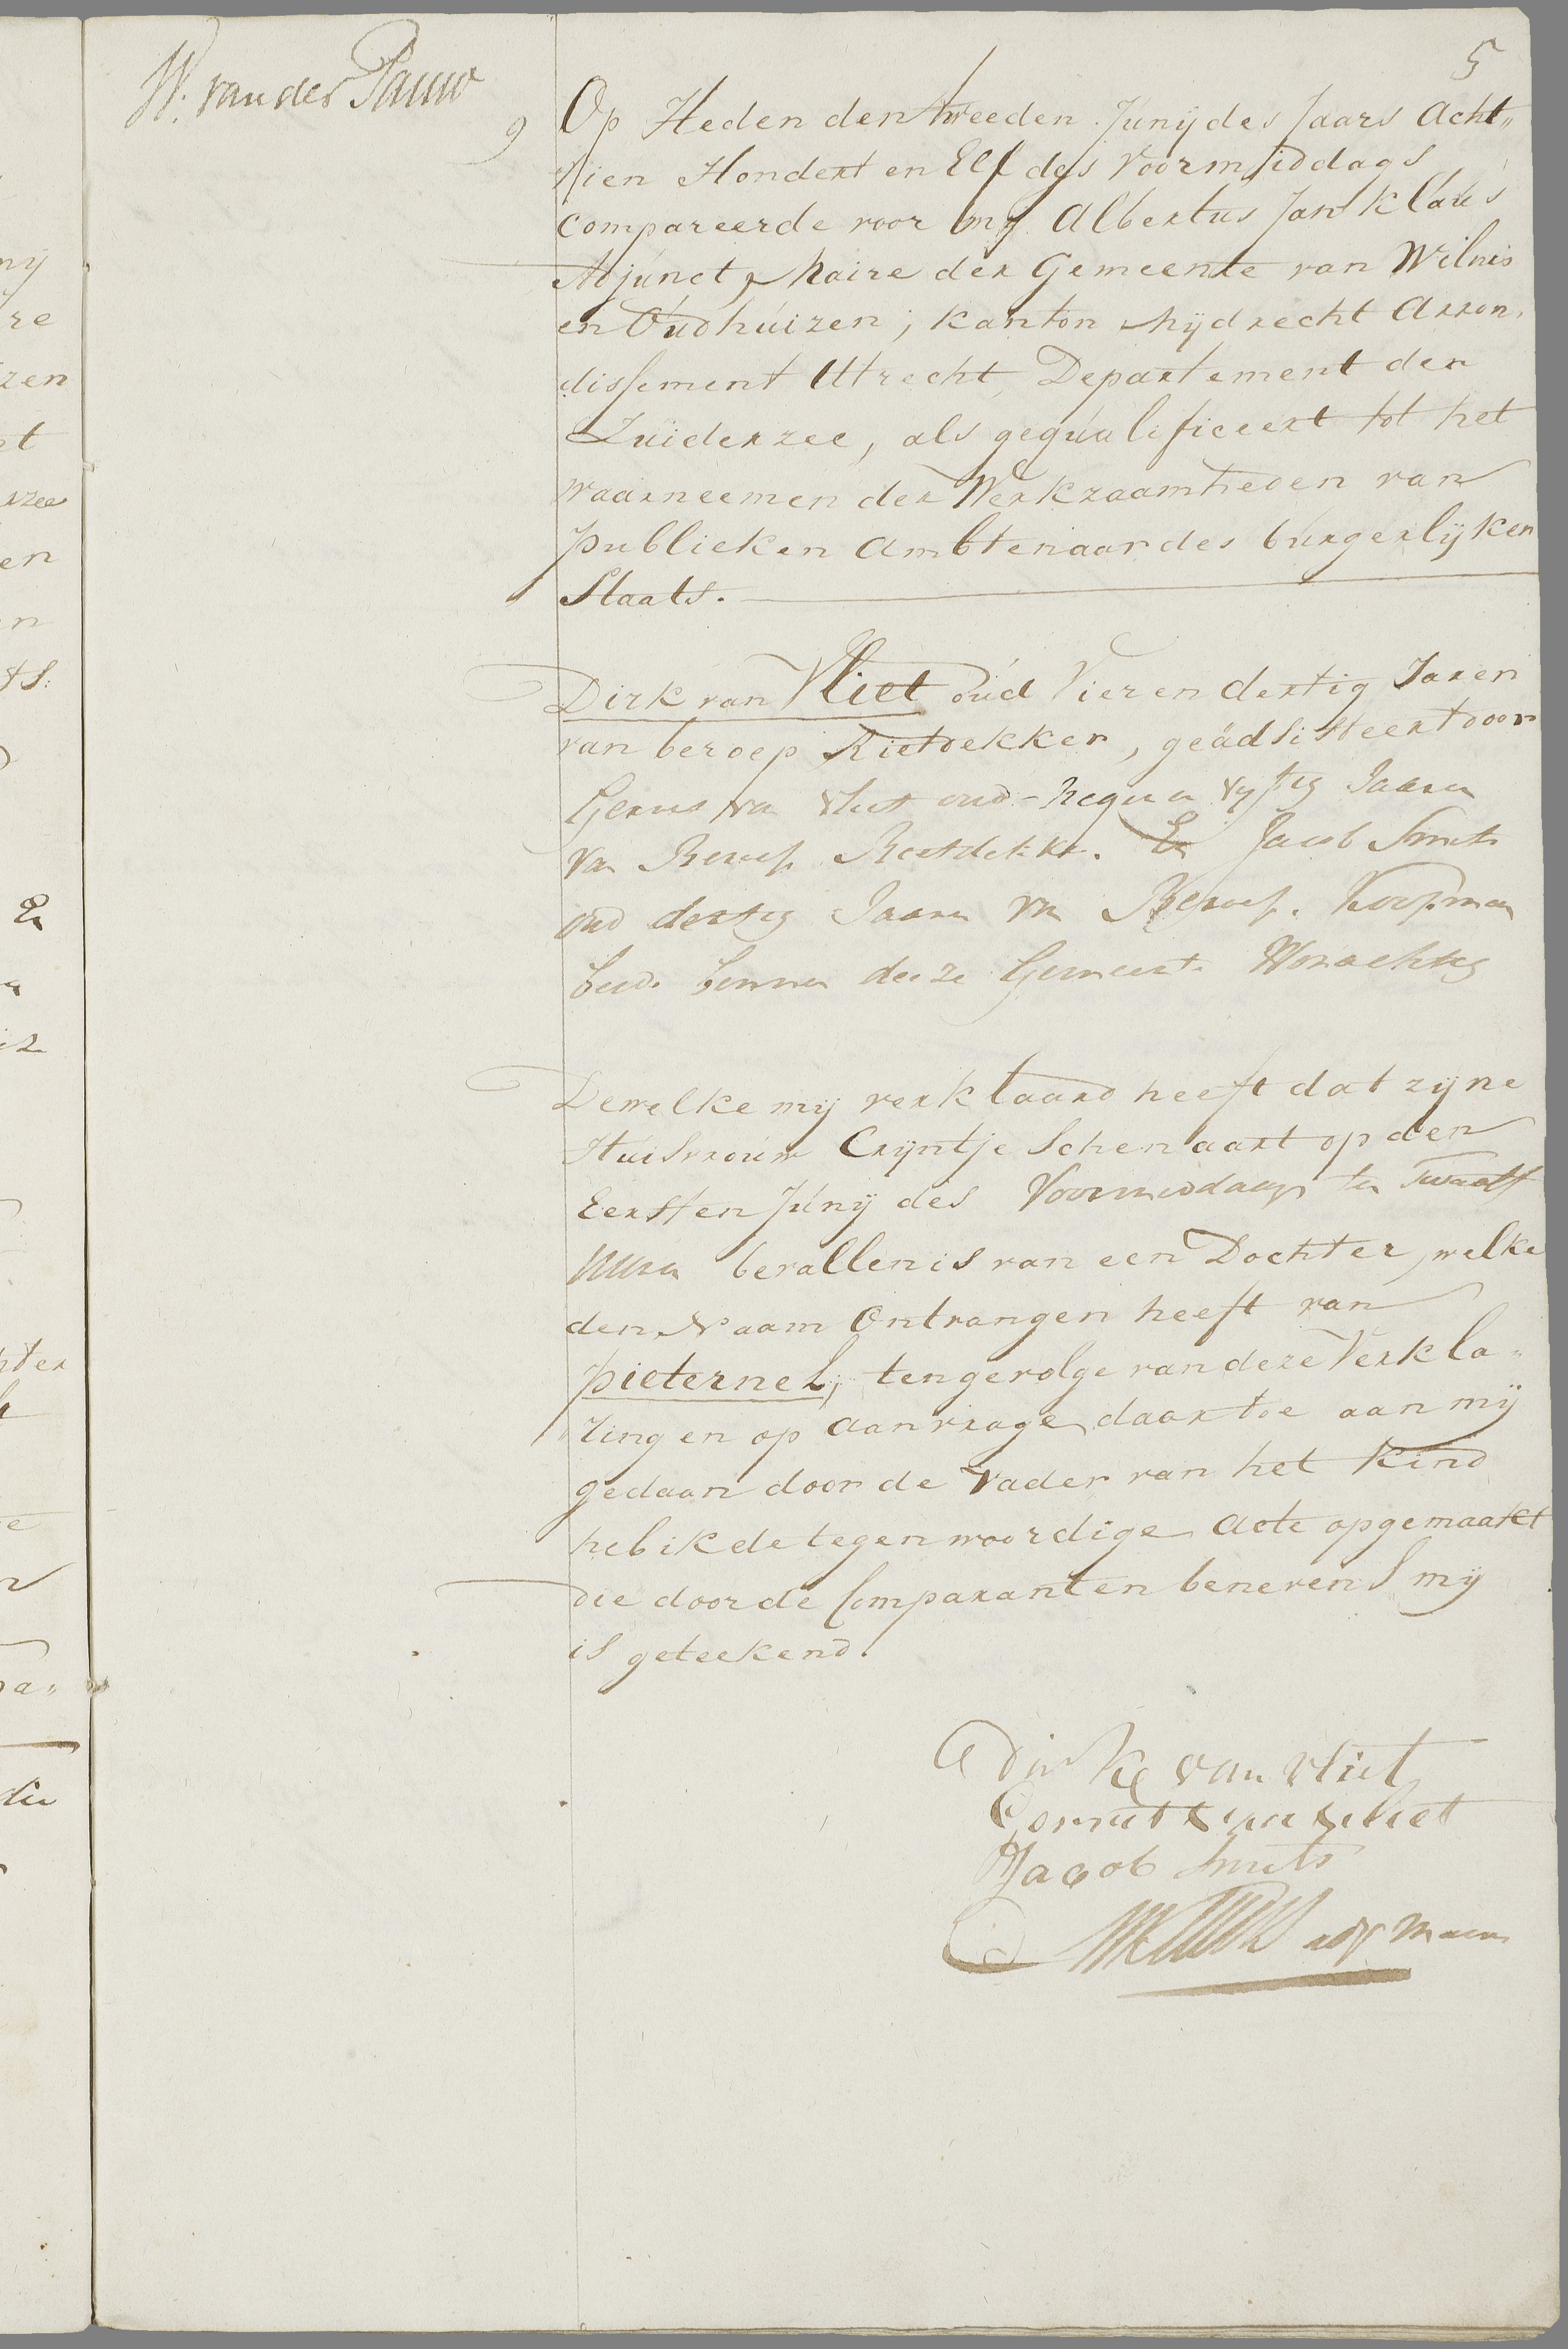 W. van der Pauw
5
9
Op Heden den tweeden Junij des Jaars Acht„
tien Hondert en Elf des Voormiddags
Compareerde voor mij Albertus Jan Klaus
Adjunct Maire der Gemeente van Wilnis
en Oudhuizen; Kanton Mijdrecht Arron„
dissement Utrecht, Departement der
Zuiderzee, als gequalificeert tot het
waarneemen der Werkzaamheden van
publieken Ambtenaar des burgerlijken
Staats.
Dirk van Vliet oud Vier en dertig Jaren
van beroep Rietdekker, geädsisteert door
van Vliet oud Negen en vyftig Jaaren
van Beroep Rietdekker. En Jacob Smits
oud dertig Jaaren van Beroep. Koopman
beide binnen deeze Gemeente Woonachtig
Dewelke mij verklaard heeft dat zijne
Huisvrouw Crijntje Schenaart op den
Eersten Junij des Voormiddags ten Twaalf
Uuren bevallen is van een Dochter, welke
den Naam Ontvangen heeft van
pieternel, tengevolge van deze Verkla„
ring en op aanvrage daartoe aan mij
gedaan door de Vader van het Kind
heb ik de tegenwoordige Acte opgemaakt
die door de Comparanten benevens mij
is geteekend.
Dirk van Vliet
van Vliet
Jacob Smits
adj Maire
ny
re
zen
t
rzee
en
n
ts.
En